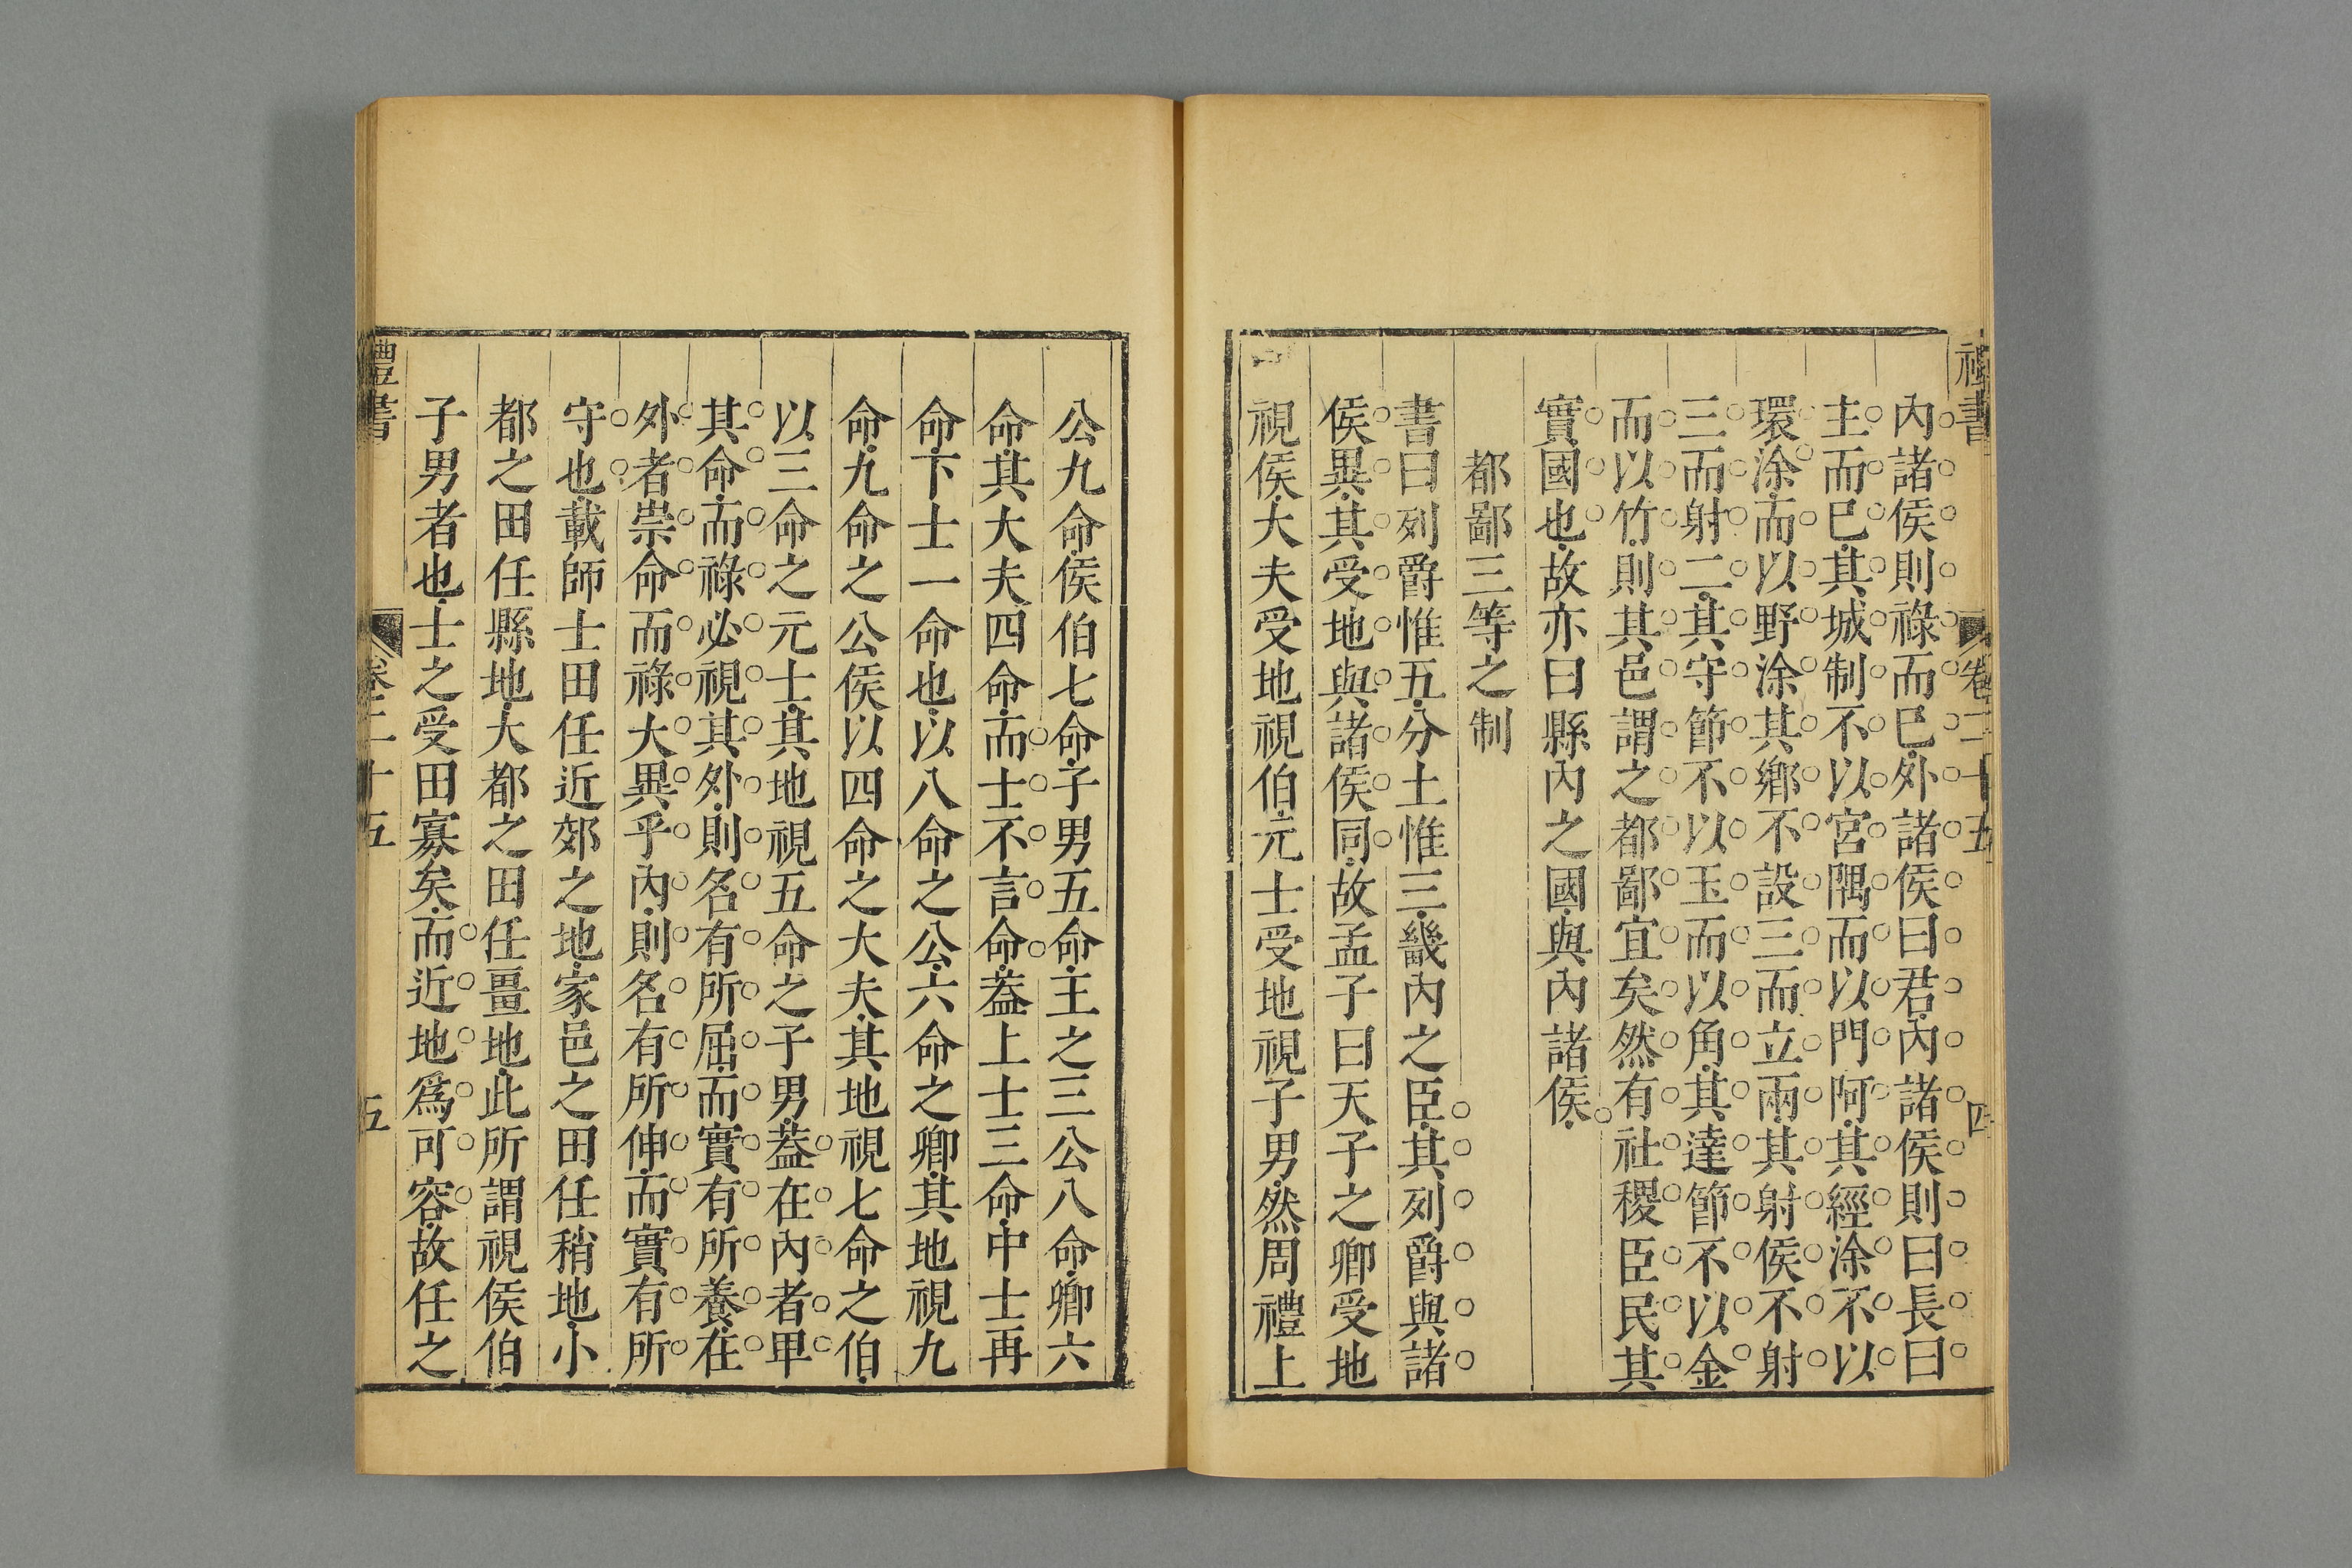 禮書 卷二十五 四
內諸侯則祿而巳外諸侯曰君內諸侯則曰長曰
主而巳其城制不以宮隅而以門阿其經涂不以
環涂而以野涂其鄉不設三而立兩其射侯不射
三而射二其守節不以玉而以角其達節不以金
而以竹則其邑謂之都鄙宜矣然有社稷臣民其
實國也故亦曰縣內之國與內諸侯
都鄙三等之制
書曰列爵惟五分土惟三畿內之臣其列爵與諸
侯異其受地與諸侯同故孟子曰天子之卿受地
視侯大夫受地視伯元士受地視子男然周禮上
公九命侯伯七命子男五命主之三公八命卿六
命其大夫四命而士不言命葢上士三命中士再
命下士一命也以八命之公六命之卿其地視九
命九命之公侯以四命之大夫其地視七命之伯
以三命之元士其地視五命之子男葢在內者甲
其命而祿必視其外則名有所屈而實有所養在
外者崇命而祿大異乎內則名有所伸而實有所
守也載師士田任近郊之地家邑之田任稍地小
都之田任縣地大都之田任畺地此所謂視侯伯
子男者也士之受田寡矣而近地爲可容故任之
禮書 卷二十五 五